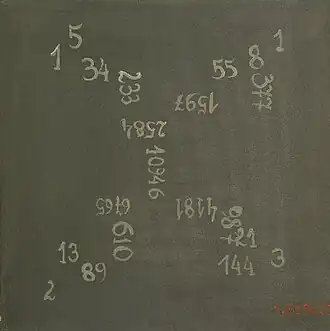 5
1
1
34
55
8
233
377
1597
2584
10946
6765
4181
610
987
21
13
89
144
3
2